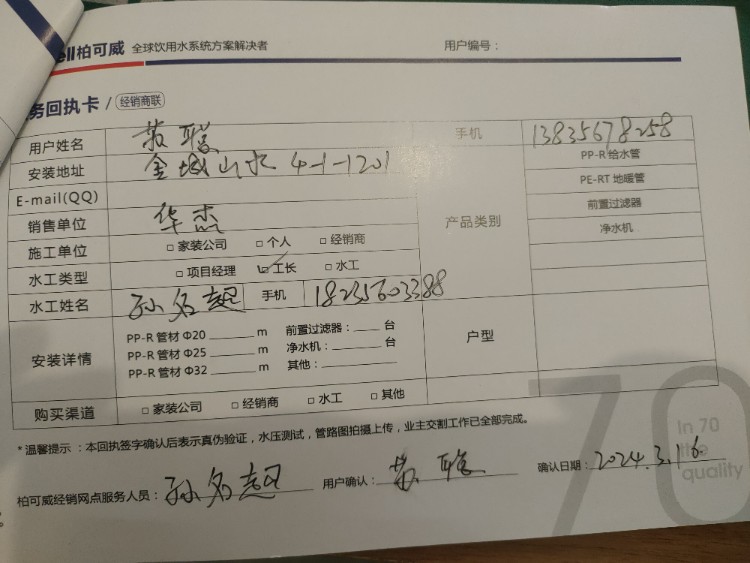 ell柏可威 全球饮用水系统方案解决者 用户编号：
务回执卡 / 经销商联
用户姓名 苏聪 手机 13835678258
安装地址 金域山水 4-1-1201
E-mail(QQ)
销售单位 华杰
施工单位 □ 家装公司 □ 个人 □ 经销商
水工类型 □ 项目经理 ☑ 工长 □ 水工
水工姓名 孙名超 手机 18235603388
产品类别
PP-R 给水管
PE-RT 地暖管
前置过滤器
净水机
安装详情
PP-R 管材 Φ20 ______ m 前置过滤器：____ 台
PP-R 管材 Φ25 ______ m 净水机：______ 台
PP-R 管材 Φ32 ______ m 其他：______
户型
购买渠道 □ 家装公司 □ 经销商 □ 水工 □ 其他
70
In 70
the
quality
*温馨提示：本回执签字确认后表示真伪验证，水压测试，管路图拍摄上传，业主交割工作已全部完成。
柏可威经销网点服务人员：孙名超 用户确认：苏聪 确认日期：2024.3.16.